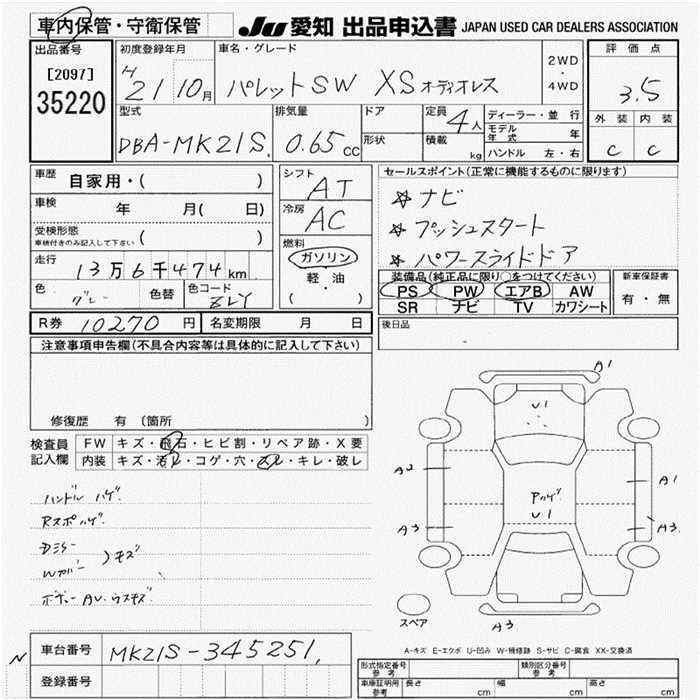 車内保管・守衛保管 JU 愛知 出品申込書 JAPAN USED CAR DEALERS ASSOCIATION
出品番号 初度登録年月 車名・グレード 2WD ・ 4WD 評価点
[2097] H 21 10月 パレットSW XS オーディオレス 3.5
35220 型式 排気量 ドア 定員 4人 ディーラー・並行 外装 内装
DBA-MK21S 0.65 cc 形状 積載 kg モデル年式 年 C C
ハンドル 左・右
車歴 自家用・( ) シフト AT セールスポイント(正常に機能するものに限ります)
車検 年 月( 日) 冷房 AC ☆ナビ
受検形態 ( ) ☆プッシュスタート
車検付きのみ記入して下さい 燃料 ☆パワースライドドア
走行 13万6千474km ガソリン 装備品(純正品に限り○をつけてください) 新車保証書
色 グレー 色替 色コード 軽・油 PS PW エアB AW 有・無
( ) SR ナビ TV カワシート
R券 10270円 名変期限 月 日 後日品
注意事項申告欄(不具合内容等は具体的に記入して下さい)
修復歴 有 (箇所 )
検査員 FW キズ・飛石・ヒビ割・リペア跡・X要
記入欄 内装 キズ・汚レ・コゲ・穴・スレ・キレ・破レ
ハンドル ハゲ
Rスポ ハゲ
Dミラー
Wカバー )キズ
ボデー AU・ウスキズ
A1
U1
A2
A1
Pハゲ
U1
A3
A3
スペア
A3
A-キズ E-エクボ U-凹み W-補修跡 S-サビ C-腐食 XX-交換済
N 車台番号 MK21S-345251
登録番号
形式指定番号 参考 類別区分番号 参考
車庫証明用 参考 長さ cm 幅 cm 高さ cm